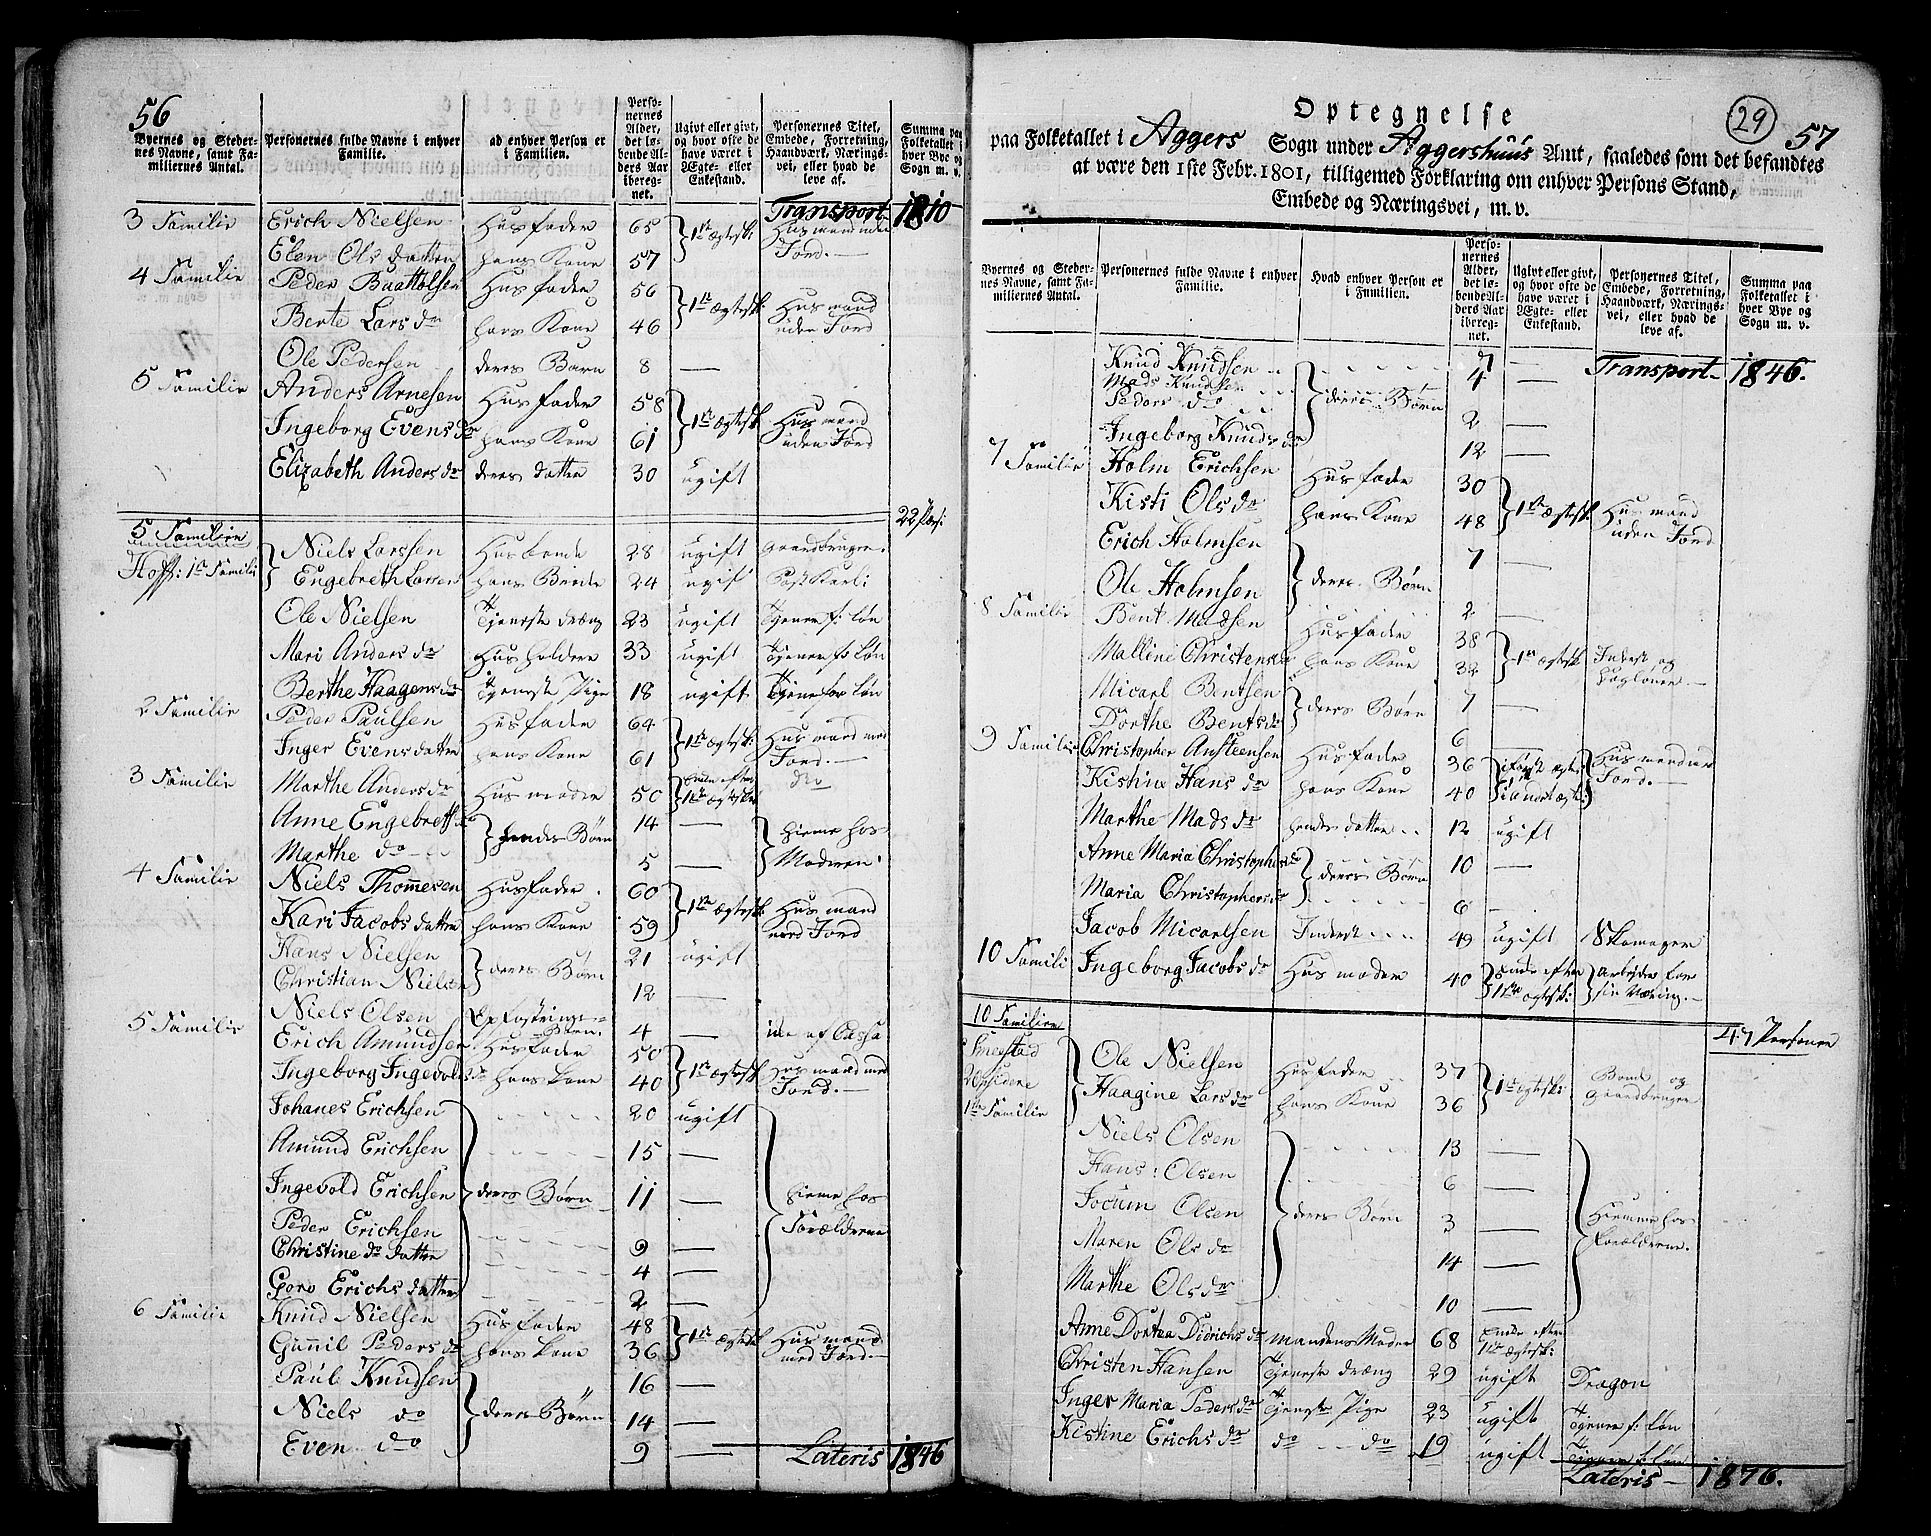 56
Byernes og Stedernes Navne, samt Familiernes Antal.
Personernes fulde Navne i enhver Familie.
ad enhver Person er i Familien.
Personernes Alder, det løbende Alders Aar iberegnet.
Ugivt eller givt, og hvor ofte de have været i Ægte- eller Enkestand.
Personernes Titel, Embede, Forretning, Haandværk, Næringsvei, eller hvad de leve af.
Summa paa Folketallet i hver Bye og Sogn m. v.
Transport 1810
3 Familie Erich Nielsen Husfader 65 1ste Ægtesk: Husmand uden
Elen Ols datter hans Kone 57 Jord.
4 Familie Peder Baattolsen Husfader 56 1ste Ægtesk: Husmand
Berte Lars do hans Kone 46 uden Jord
Ole Pedersen deres Barn 8 —
5 Familie Anders Arnesen Husfader 58 1ste Ægtesk: Husmand
Ingeborg Evens do hans Kone 61 uden Jord
Elizabeth Anders do deres datter 30 ugift
22 Pers:
5 Familier
Hoff: 1te Familie Niels Larssen Husbonde 28 ugift Gaardbruger.
Engebreth Larsen hans Broder 24 ugift Postkarl:
Ole Nielsen Tjeneste dræng 23 ugift Tjener f: Løn
Mari Anders do Husholder 33 ugift Tjener f: Løn
Berthe Haagens do Tjeneste Pige 18 ugift Tjener for Løn
2 Familie Peder Paulsen Husfader 64 1ste Ægtesk: Husmand med
Inger Evens datter hans Kone 61 Jord.
3 Familie Marthe Anders do Husmoder 50 Enke efter 1ste Ægtesk: do
Anne Engebrets do hendes Børn 14 — hieme hos
Marthe do 5 — Moderen
4 Familie Niels Thommesen Husfader 60 1ste Ægtesk: Husmand
Kari Jacobs datter hans Kone 59 med Jord
Hans Nielsen deres Børn 21 ugift
Christian Nielsen 12 —
Niels Olsen Opfostrings Børn 4 — af Cassa
5 Familie Erich Amundsen Husfader 50 1ste Ægtesk: Husmand med
Ingeborg Ingevolds do hans Kone 40 Jord.
Johanes Erichsen 20 ugift
Amund Erichsen 15 —
Ingevold Erichsen deres Børn 11 — hieme hos
Peder Erichsen Forældrene
Christine do datter 9 —
Goro Erichs datter 4 —
2 —
6 Familie Knud Nielsen Husfader 48 1ste Ægtesk: Husmand
Gunnil Peders do hans Kone 36 med Jord.
Paul Knudsen 16 —
Niels do deres Børn 14 —
Even do 9 — Lateris 1846
29
57
Optegnelse
paa Folketallet i Aggers Sogn under Aggershuus Amt, saaledes som det befandtes
at være den 1ste Febr. 1801, tilligemed Forklaring om enhver Persons Stand,
Embede og Næringsvei, m. v.
Byernes og Stedernes Navne, samt Familiernes Antal.
Personernes fulde Navne i enhver Familie.
Hvad enhver Person er i Familien.
Personernes Alder, det løbende Alders Aar iberegnet.
Ugivt eller givt, og hvor ofte de have været i Ægte- eller Enkestand.
Personernes Titel, Embede, Forretning, Haandværk, Næringsvei, eller hvad de leve af.
Summa paa Folketallet i hver Bye og Sogn m. v.
Knud Knudsen 7 — Transport 1846.
Mads Knudsen 4 —
Peder do deres Børn 2 —
Ingeborg Knuds do 12 —
7 Familie Holm Erichsen Husfader 30 1ste Ægtesk: Husmand
Kisti Ols do hans Kone 48 uden Jord
Erich Holmsen deres Børn 7 —
Ole Holmsen 2 —
8 Familie Bent Madsen Husfader 38 1ste Ægtesk: Inderst og
Malline Christens do hans Kone 32 Dagløner
Micael Bentsen deres Børn 7 —
Dorthe Bents do 6
9 Familie Christopher Ansteensen Husfader 36 i første Ægtes: Husmand med
Kistine Hans do hans Kone 40 i andet Ægtes: Jord.
Marthe Mads do hendes datter 12 ugift
Anne Maria Christophers do deres Børn 10 —
Maria Christophers do 6 —
Jacob Micaelsen Inderst 49 ugift Skomager
10 Famili Ingeborg Jacobs do Husmoder 40 Enke efter 1ste Ægtesk: Arbejder for sin Næring.
10 Familier
47 Personer
Smestad Ole Nielsen Husfader 37 1ste Ægtesk: Bonde og
Haagine Lars do hans Kone 36 Gaardbruger
1te Familie
Niels Olsen 13 —
Hans: Olsen 6 —
Jocum Olsen deres Børn 3 — Hiemme hos
Maren Ols do 14 — Forældrene.
Marthe Ols do 10 —
Anne Dortea Didrichs do Mandens Moder 68 Enke efter 1ste Ægtesk:
Christen Hansen Tjeneste dræng 29 ugift Dragon
Inger Maria Peders do Tjeneste Pige 23 ugift Tjener f: Løn
Kistine Erichs do do do 19 ugift Tjener f: Løn
Lateris 1876.